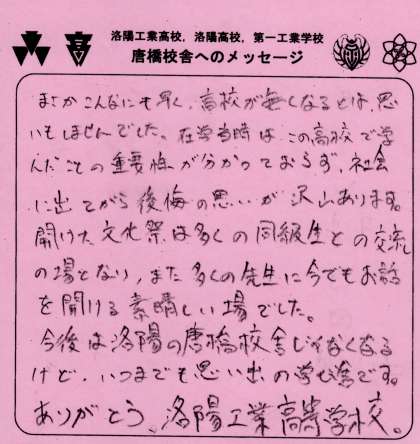 洛陽工業高校，洛陽高校，第一工業学校
唐橋校舎へのメッセージ
まさかこんなにも早く、高校が無くなるとは、思
いもしませんでした。在学当時は、この高校で学
んだことの重要性が分かっておらず、社会
に出てから後悔の思いが沢山あります。
開けた文化祭は多くの同級生との交流
の場となり、また多くの先生に今でもお話
を聞ける素晴しい場でした。
今後は洛陽の唐橋校舎じゃなくなる
けど、いつまでも思い出の学び舎です。
ありがとう、洛陽工業高等学校。